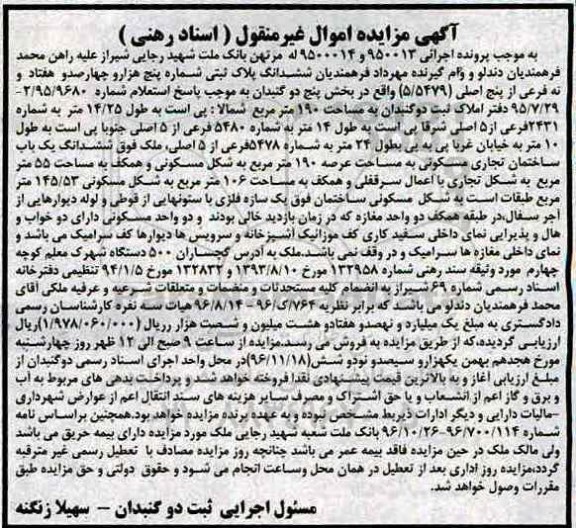 آگهی مزایده اموال غیرمنقول ( اسناد رهنی )
به موجب پرونده اجرائی ۹۵۰۰۱۳ و ۹۵۰۰۰۱۴ له مرتهن بانک ملت شهید رجایی شیراز علیه راهن محمد
فرهمندیان دندلو و وام گیرنده مهرداد فرهمندیان ششدانگ پلاک ثبتی شماره پنج هزارو چهارصدو هفتاد و
نه فرعی از پنج اصلی (۵/۵۴۷۹) واقع در بخش پنج دو گنبدان به موجب پاسخ استعلام شماره ۲/۹۵/۹۶۸۰-
۹۵/۷/۲۹ دفتر املاک ثبت دوگنبدان به مساحت ۱۹۰ متر مربع شمالا : پی است به طول ۱۴/۲۵ متر به شماره
۲۴۳۱فرعی از۵ اصلی شرقا پی است به طول ۱۴ متر به شماره ۵۴۸۰ فرعی از ۵ اصلی جنوبا پی است به طول
۱۰ متر به خیابان غربا پی به پی بطول ۲۴ متر به شماره ۵۴۷۸فرعی از ۵ اصلی، ملک فوق ششدانگ یک باب
ساختمان تجاری مسکونی به مساحت عرصه ۱۹۰ متر مربع به شکل مسکونی و همکف به مساحت ۵۵ متر
مربع به شکل تجاری با اعمال سرقفلی و همکف به مساحت ۱۰۶ متر مربع به شکل مسکونی ۱۴۵/۵۳ متر
مربع طبقات است به شکل مسکونی ساختمان فوق یک سازه فلزی با ستونهایی از قوطی و لوله دیوارهایی از
آجر سفال،در طبقه همکف دو واحد مغازه که در زمان بازدید خالی بودند و دو واحد مسکونی دارای دو خواب و
هال و پذیرایی نمای داخلی سفید کاری کف موزائیک آشپزخانه و سرویس ها دیوارها کف سرامیک می باشد و
نمای داخلی مغازه ها سرامیک و در وقف نمی باشد.ملک به آدرس گچساران ۵۰۰ دستگاه شهرک معلم کوچه
چهارم مورد وثیقه سند رهنی شماره ۱۳۲۹۵۸ مورخ ۱۳۹۳/۸/۱۰ و ۱۳۲۸۳۲ مورخ ۹۴/۱/۵ تنظیمی دفترخانه
اسناد رسمی شماره ۶۹ شیراز به انضمام کلیه مستحدثات و منضمات و متعلقات شرعیه و عرفیه ملکی آقای
محمد فرهمندیان دندلو می باشد که برابر نظریه ۷۶۴/ک/۹۶-۹۶/۸/۱۴ هیات سه نفره کارشناسان رسمی
دادگستری به مبلغ یک میلیارد و نهصدو هفتادو هشت میلیون و شصت هزار رریال (۱/۹۷۸/۰۶۰/۰۰۰)ریال
ارزیابی گردیده،که از طریق مزایده به فروش می رسد.مزایده از ساعت ۹ صبح الی ۱۲ ظهر روز چهارشنبه
مورخ هجدهم بهمن یکهزارو سیصدو نودو شش(۹۶/۱۱/۱۸)در محل واحد اجرای اسناد رسمی دوگنبدان از
مبلغ ارزیابی آغاز و به بالاترین قیمت پیشنهادی نقدا فروخته خواهد شد و پرداخت بدهی های مربوط به آب
و برق و گاز اعم از انشعاب و یا حق اشتراک و مصرف سایر هزینه های سند انتقال اعم از عوارض شهرداری
-مالیات دارایی و دیگر ادارات ذیربط مشخص نبوده و به عهده برنده مزایده خواهد بود.همچنین براساس نامه
شماره ۹۶/۷۰۰/۱۱۴-۹۶/۱۰/۲۶ بانک ملت شعبه شهید رجایی ملک مورد مزایده دارای بیمه حریق می باشد
ولی مالک ملک در حین مزایده فاقد بیمه عمر می باشد چنانچه روز مزایده مصادف با تعطیل رسمی غیر مترقبه
گردد،مزایده روز اداری بعد از تعطیل در همان محل وساعت انجام می شود و حقوق دولتی و حق مزایده طبق
مقررات وصول خواهد شد.
مسئول اجرایی ثبت دو گنبدان - سهیلا زنگنه